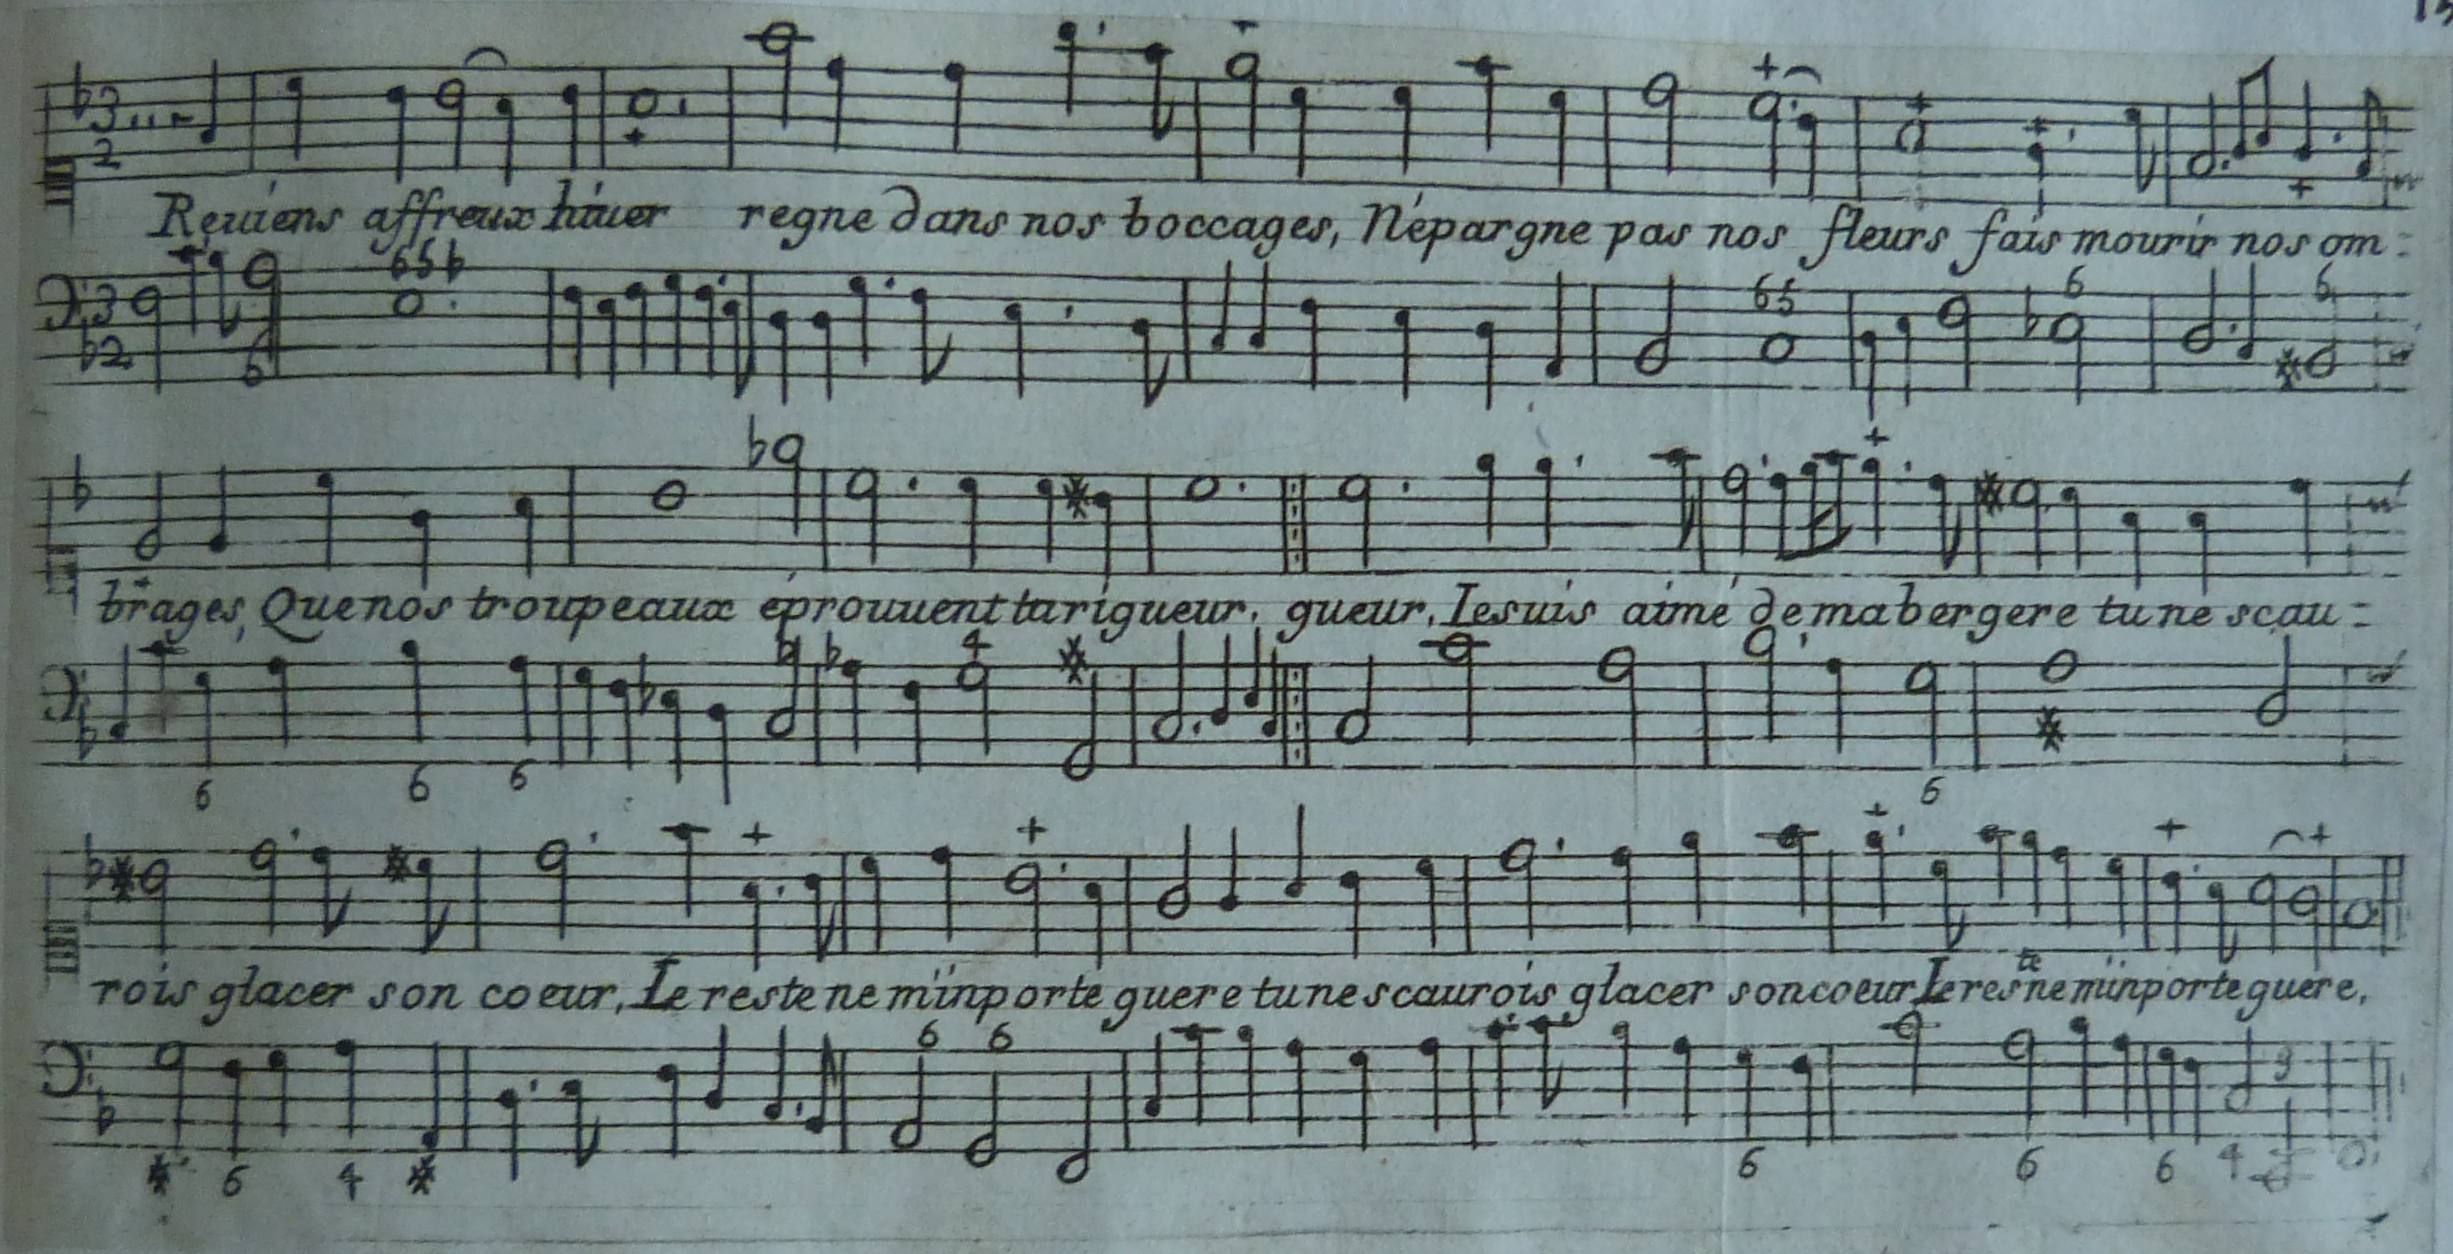 Reuiens affreux hiuer regne dans nos boccages, N'épargne pas nos fleurs fais mourir nos om=
brages, Que nos troupeaux éprouuent ta rigueur. gueur, Ie suis aimé de ma bergere tu ne scau=
rois glacer son coeur, Le reste ne m'inporte guere tu ne scaurois glacer son coeur Le reste ne m'inporte guere,